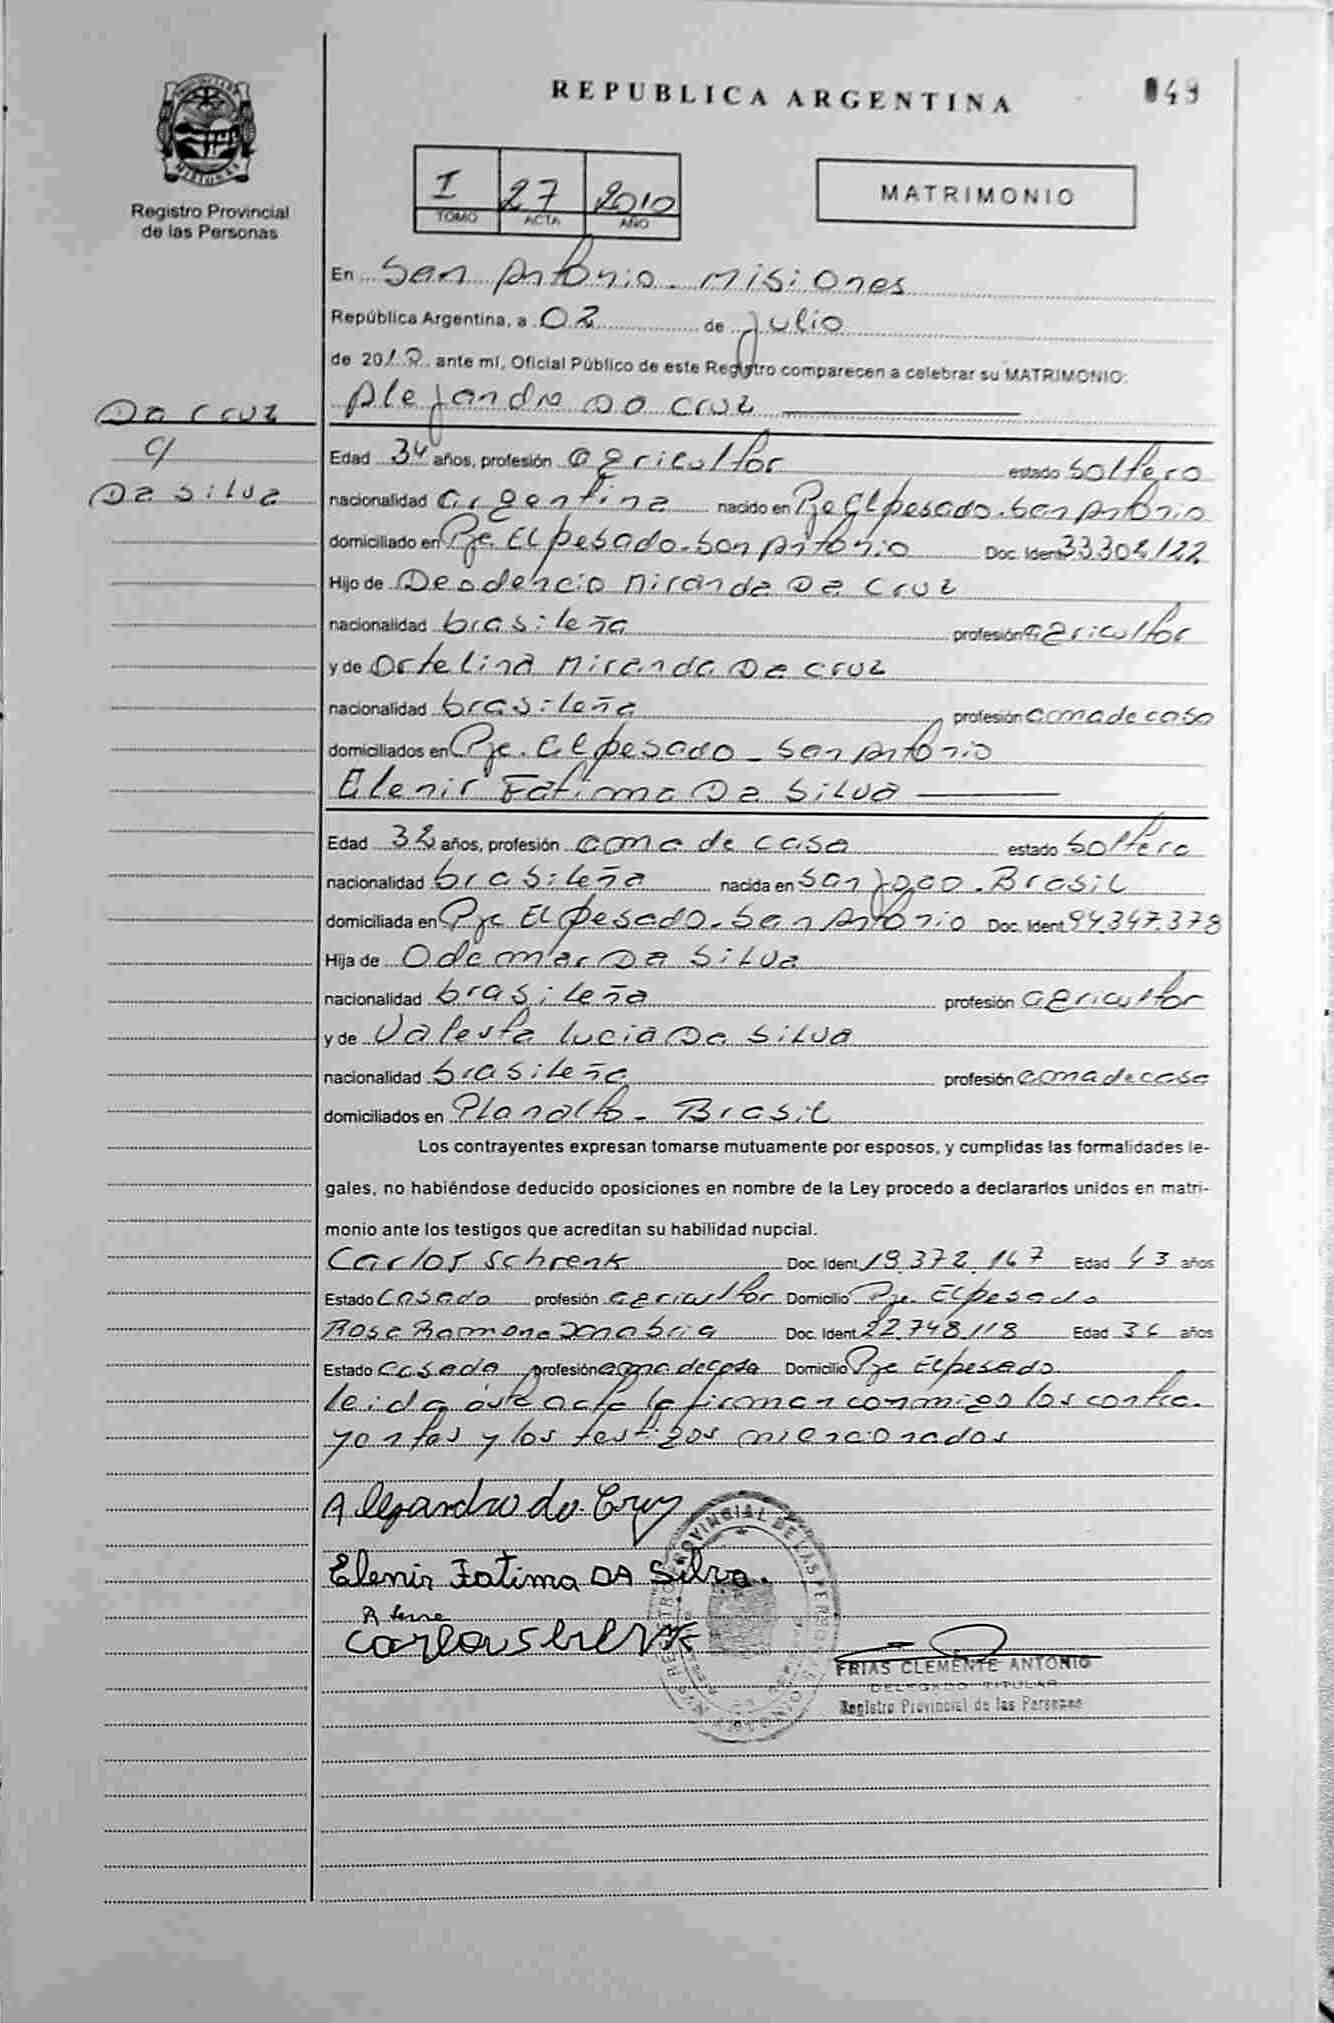 REPUBLICA ARGENTINA
049
Registro Provincial
de las Personas
I 27 2010
TOMO ACTA AÑO
MATRIMONIO
En San Antonio - Misiones
República Argentina, a 02 de Julio
de 2010 ante mí, Oficial Público de este Registro comparecen a celebrar su MATRIMONIO:
Alejandro Da Cruz
Da Cruz
c/
Da Silva
Edad 34 años, profesión agricultor estado Soltero
nacionalidad argentina nacido en Pje El pesado. San Antonio
domiciliado en Pje. El pesado - San Antonio Doc. Ident 33.302.122
Hijo de Deodencio Miranda Da Cruz
nacionalidad brasileña profesión agricultor
y de Ortelina Miranda Da Cruz
nacionalidad brasileña profesión ama de casa
domiciliados en Pje. El pesado - San Antonio
Elenir Fatima Da Silva
Edad 32 años, profesión ama de casa estado Soltera
nacionalidad brasileña nacida en San Joao. Brasil
domiciliada en Pje El pesado - San Antonio Doc. Ident 94.347.378
Hija de Odemar Da Silva
nacionalidad brasileña profesión agricultor
y de Lucia Da Silva
nacionalidad brasileña profesión ama de casa
domiciliados en Planalto - Brasil
Los contrayentes expresan tomarse mutuamente por esposos, y cumplidas las formalidades le-
gales, no habiéndose deducido oposiciones en nombre de la Ley procedo a declararlos unidos en matri-
monio ante los testigos que acreditan su habilidad nupcial.
Carlos Schrenk Doc. Ident 19.372.167 Edad 43 años
Estado Casado profesión agricultor Domicilio Pje. El pesado
Rosa Ramona Doc. Ident 22.748.118 Edad años
Estado Casada profesión ama de casa Domicilio Pje El pesado
leida ésta acta la firman conmigo los contra-
yentes y los testigos mencionados
Alejandro da Cruz
Elenir Fatima DA Silva.
FRIAS CLEMENTE ANTONIO
DELEGADO TITULAR
Registro Provincial de las Personas